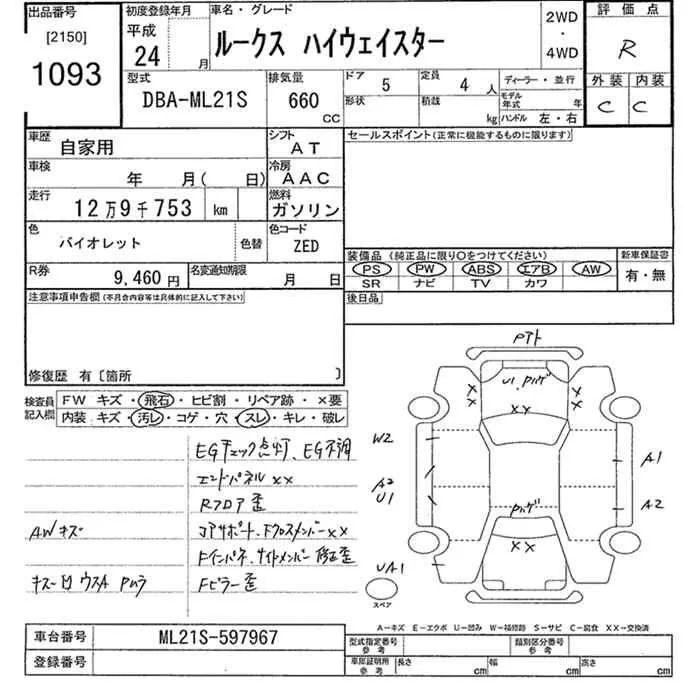 出品番号
[2150]
1093
初度登録年月
平成
24 月
車名・グレード
ルークス ハイウェイスター
2WD
・
4WD
評価点
R
外装 内装
C C
型式
DBA-ML21S
排気量
660
CC
ドア 5
形状
定員 4 人
積載 kg
ディーラー・並行
モデル年式 年
ハンドル 左・右
車歴 自家用
シフト AT
車検 年 月( 日)
冷房 AAC
走行 12万9千753 km
燃料 ガソリン
色 バイオレット 色替
色コード ZED
R券 9,460円
名変通知期限 月 日
セールスポイント(正常に機能するものに限ります)
装備品 (純正品に限り○をつけてください)
新車保証書
PS PW ABS エアB AW
SR ナビ TV カワ
有・無
後日品
注意事項申告欄(不具合内容等は具体的に記入して下さい)
修復歴 有〔箇所 〕
検査員記入欄
FW キズ・飛石・ヒビ割・リペア跡・×要
内装 キズ・汚レ・コゲ・穴・スレ・キレ・破レ
EGチェック点灯、EG不調
エンドパネル××
Rフロア歪
AWキズ
コアサポート、Fクロスメンバー××
Fインパネ、サイドメンバー修正歪
キズ凹ウスA Pムラ
Fピラー歪
Pアト
U1 Pハゲ
×× ×× ××
W2
A1
A2
U1
A2
Pハゲ
××
UA1
スペア
A-キズ E-エクボ U-凹ミ W-補修跡 S-サビ C-腐食 XX-交換済
車台番号 ML21S-597967
登録番号
型式指定番号
参考
類別区分番号
参考
車庫証明用
参考
長さ cm
幅 cm
高さ cm